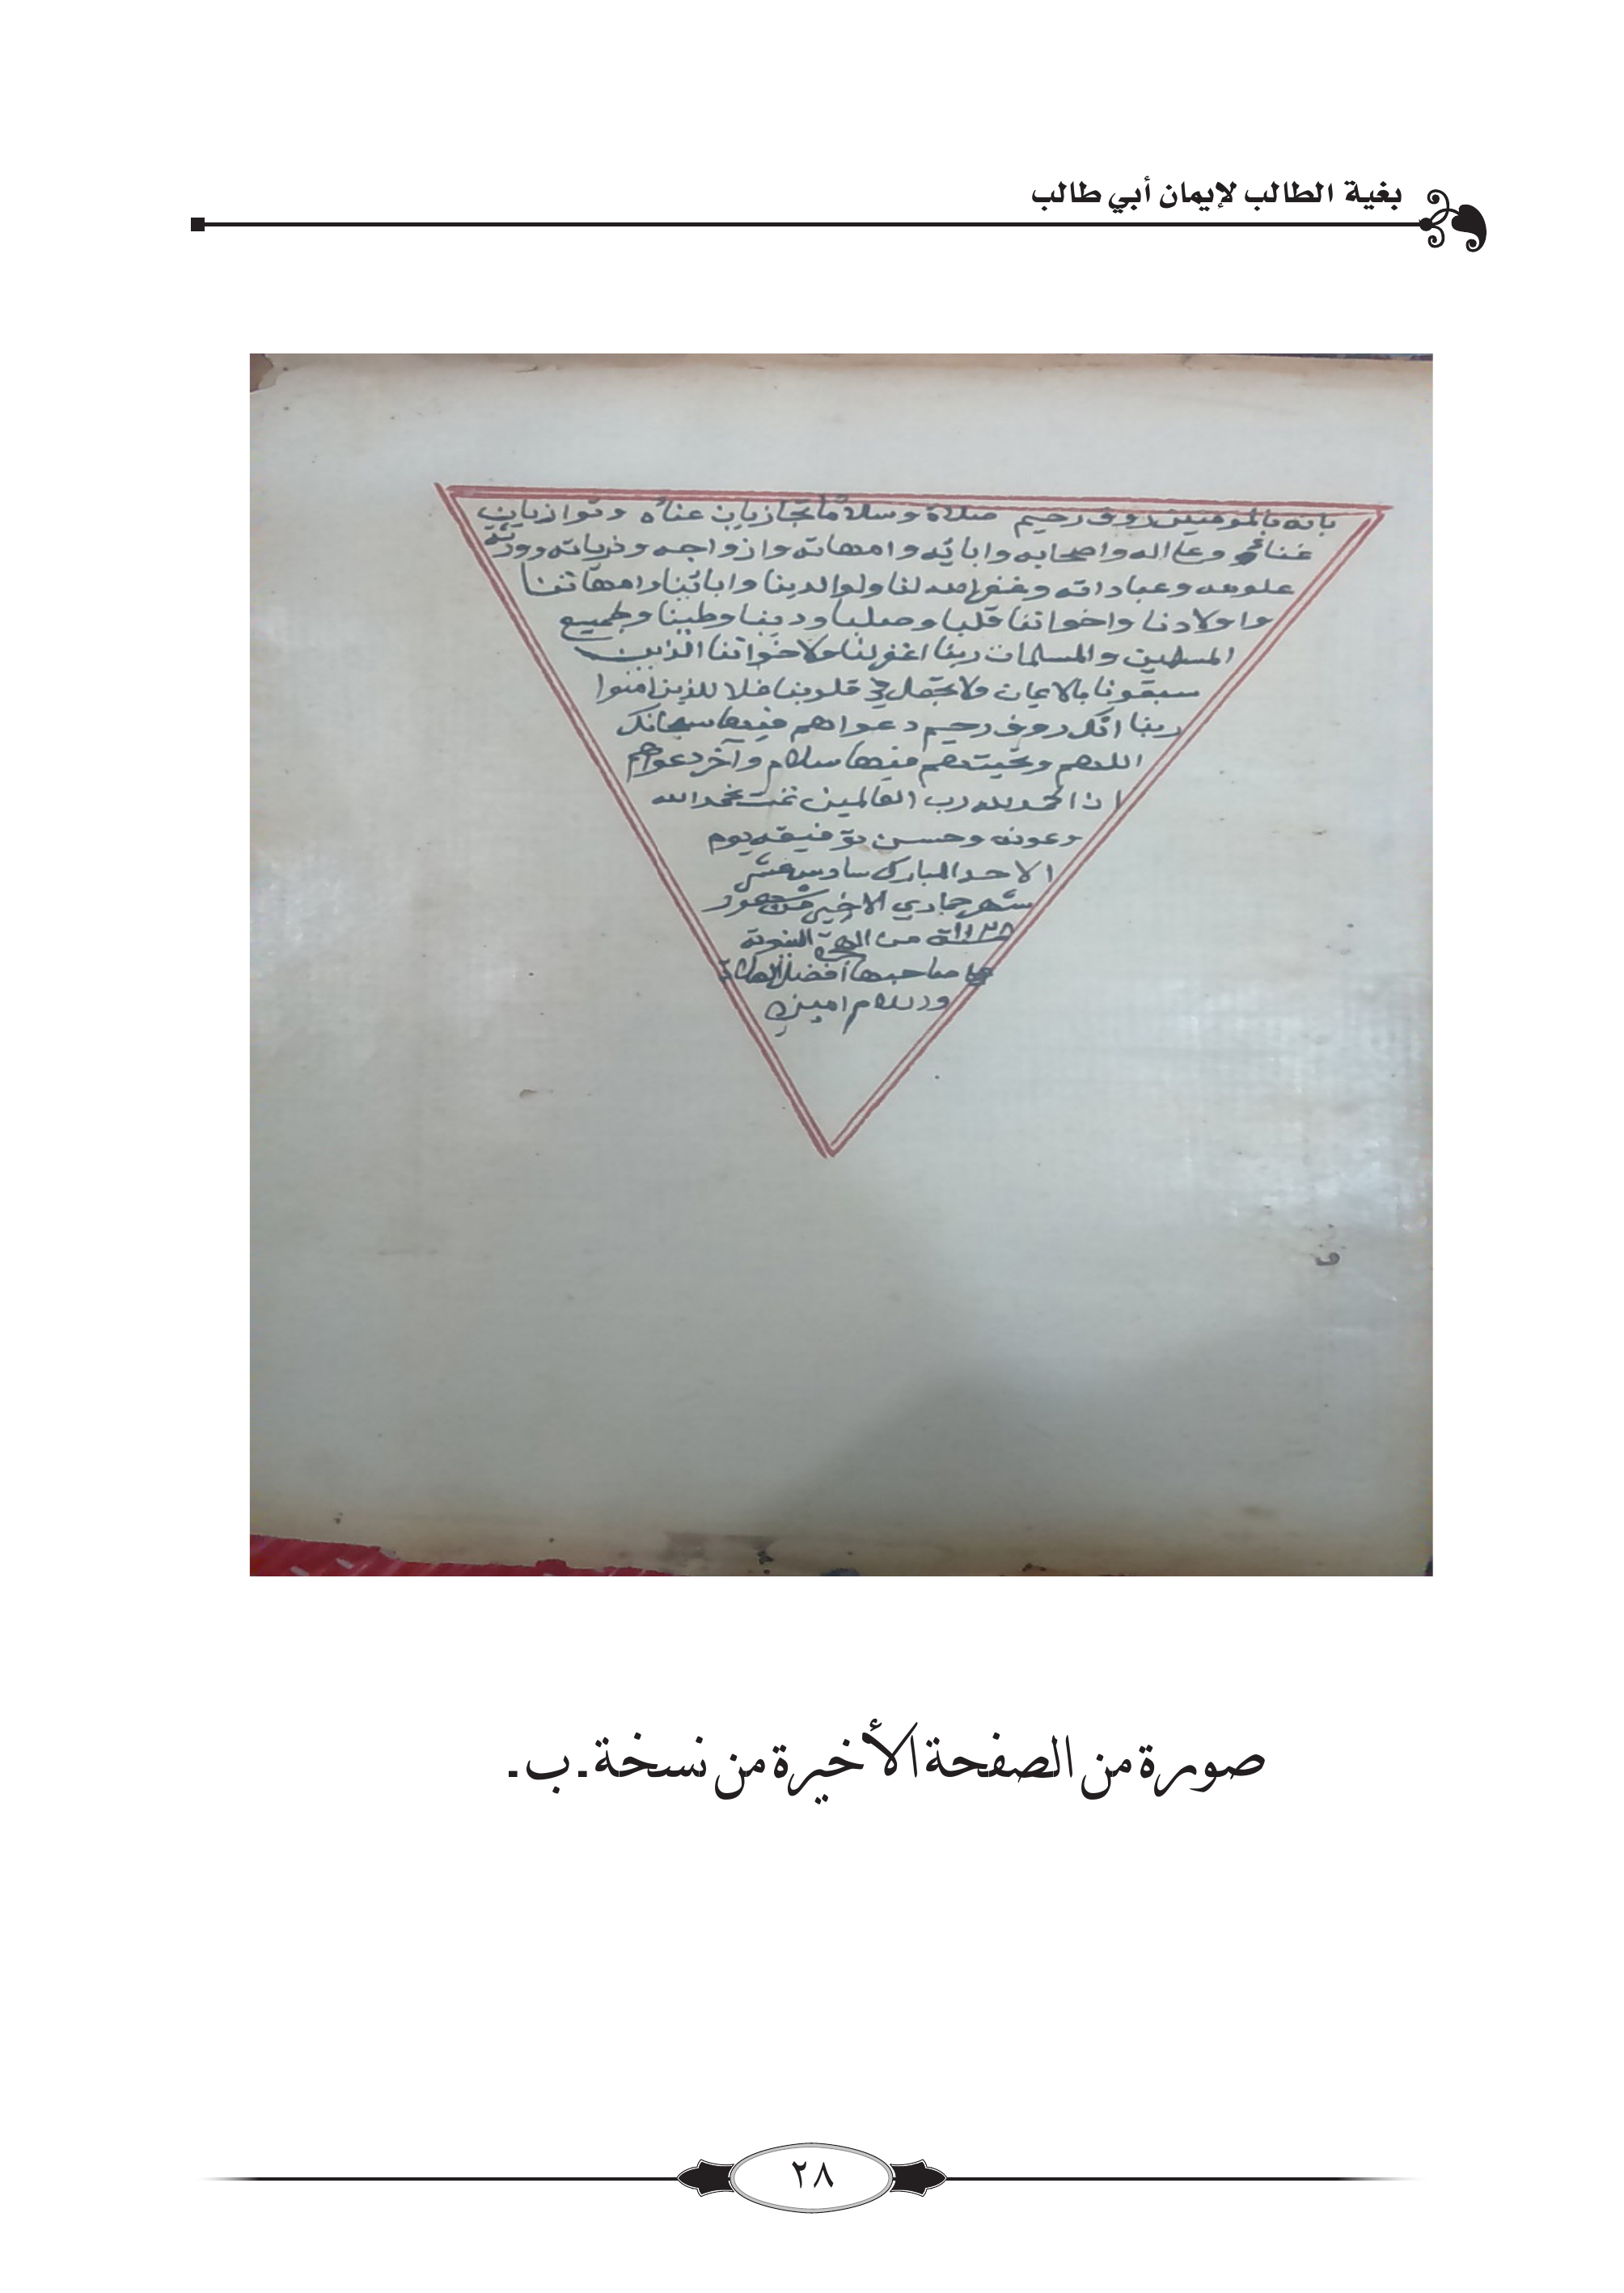 بغية الطالب لإيمان أبي طالب
بانه بالمومنين روف رحيم صلاة وسلاما يجازيان عناه وتوازيان
غناه وعلى اله واصحابه وابائه وامهاته وازواجه وذرياته وورثة
علومه وعباداته وغفر الله لنا ولوالدينا وابائنا وامهاتنا
واولادنا واخواننا قلبا وصلبا ودينا وطينا ولجميع
المسلمين والمسلمات ربنا اغفر لنا ولاخواننا الذين
سبقونا بالايمان ولا تجعل في قلوبنا غلا للذين امنوا
ربنا انك روف رحيم دعواهم فيها سبحانك
اللهم وتحيتهم فيها سلام وآخر دعواهم
ان الحمد لله رب العالمين تمت بحمد الله
وعونه وحسن توفيقه يوم
الاحد المبارك سادس عشر
شهر جمادي الاخير من شهور
من الهجرة النبوية
على صاحبها أفضل الصلاة
والسلام امين
صورة من الصفحة الأخيرة من نسخة.ب.
٢٨